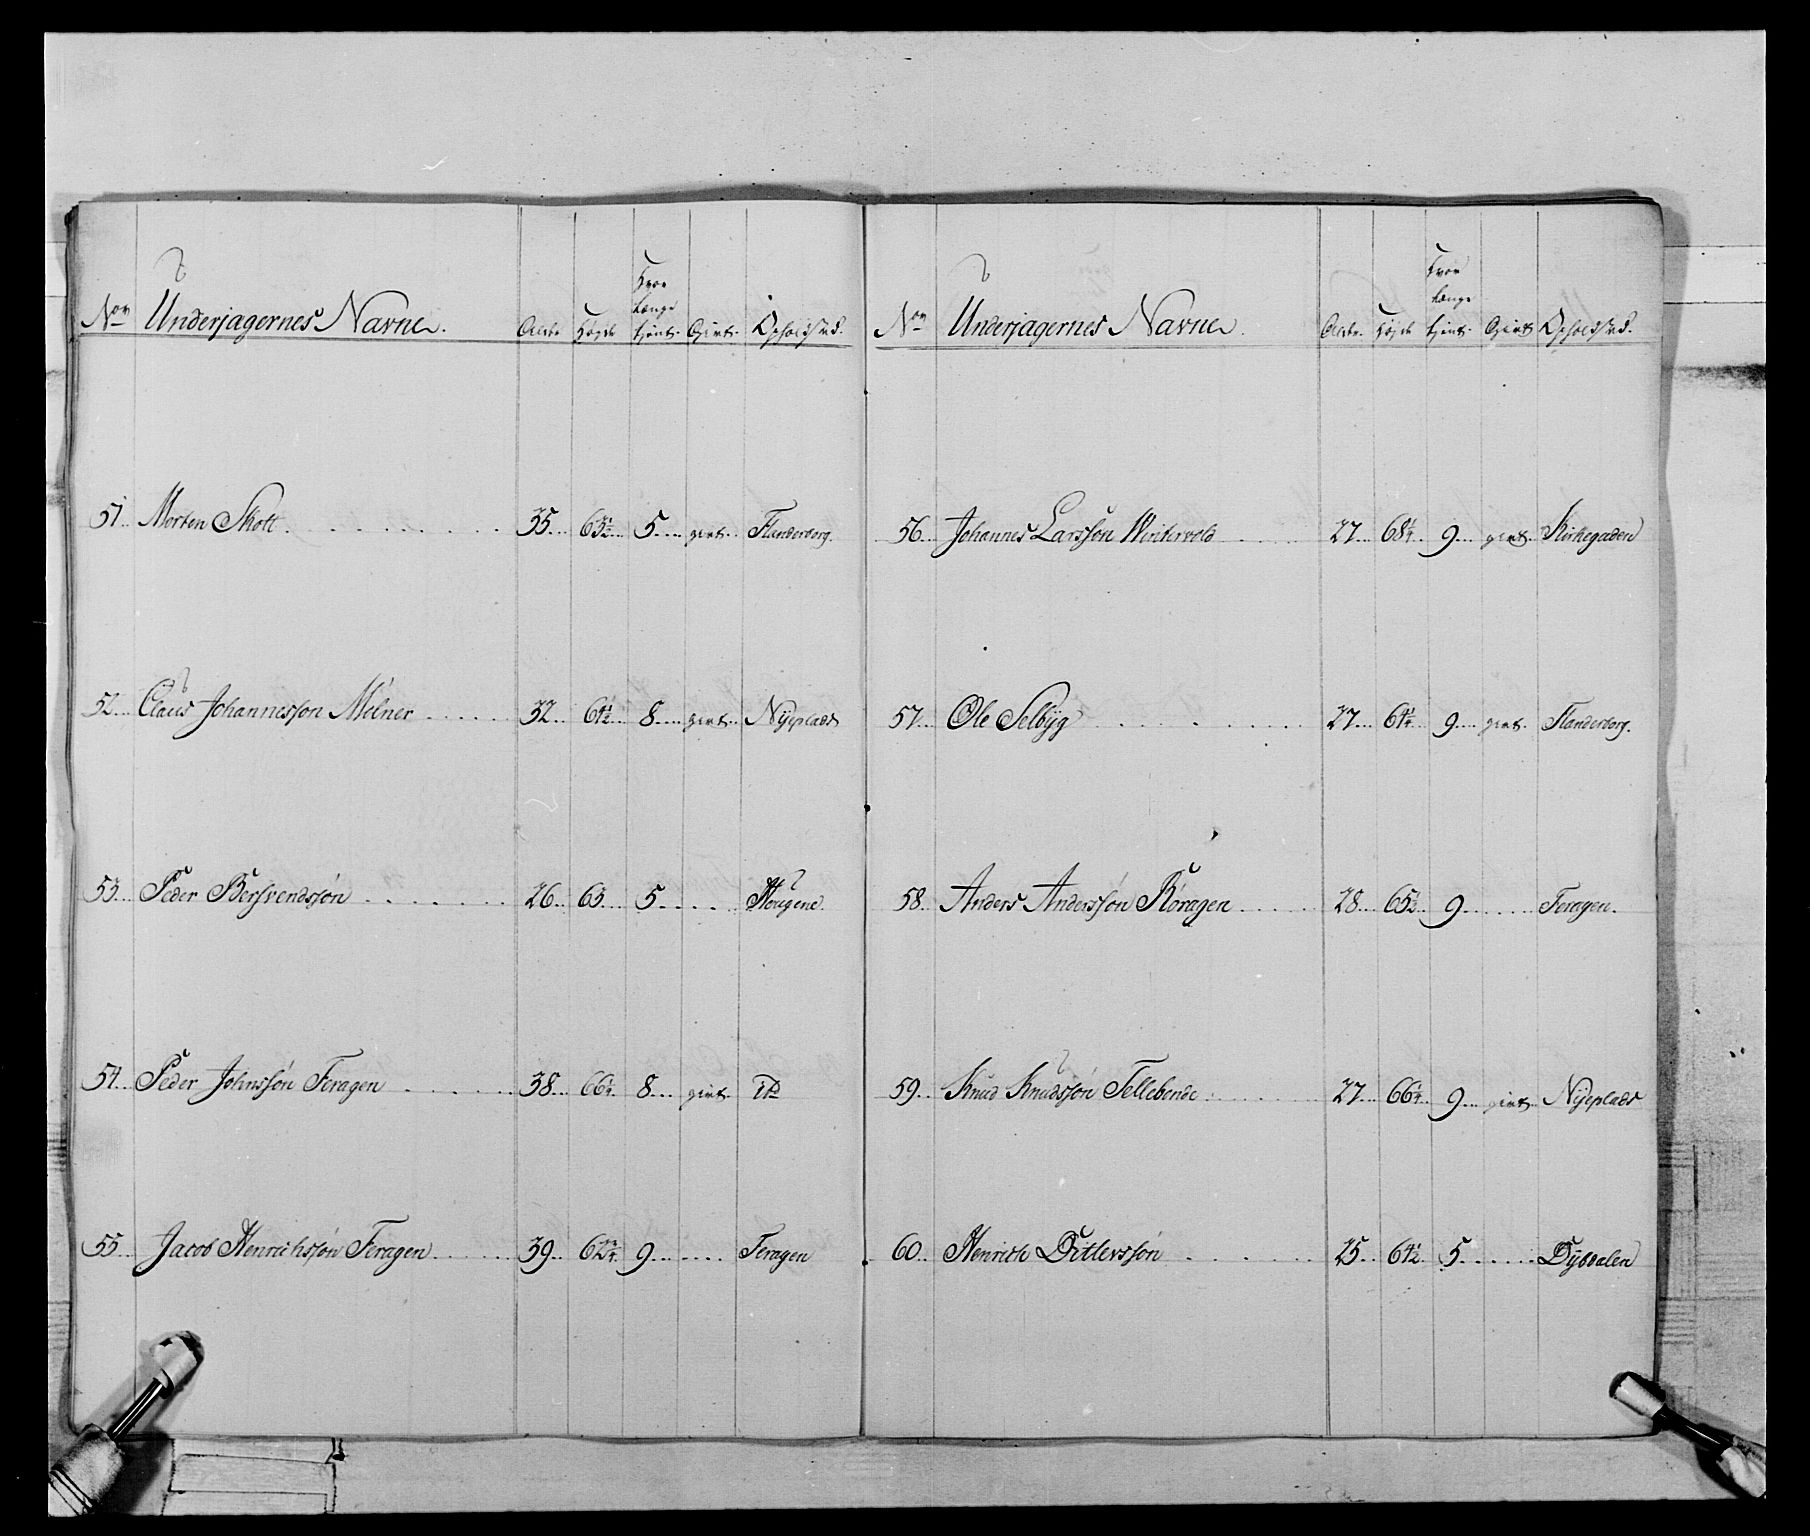 No Underjagernes Navne. Alder Høyde Hvor længe tjent. Givt. Opholdsted.
51 Morten Skott 35 63½ 5 givt. Flanderborg.
52 Claus Johannesson Mølner 32 64½ 8 givt. Nÿeplads
53 Peder Bersvendssøn 26 63 5 Hougene.
54 Peder Johnssøn Feragen 38 66¼ 8 givt.
55 Jacob Henrichssøn Feragen 39 62¾ 9 Feragen
No Underjagernes Navne. Alder. Høyde Hvor længe tjent. Givt Opholdsted.
56 Johannes Larssøn Wintervold 27 68¼ 9 givt. Kirkegaden
57 Ole Selbÿg 27 64¼ 9 givt. Flanderborg.
58 Anders Anderssøn Røragen 28 65½ 9 Feragen.
59 Knud Knudssøn Tellebonde 27 66¼ 9 givt. Nÿeplads
60 Henrich Ditlevssøn 25 64½ 5 Dÿbdalen